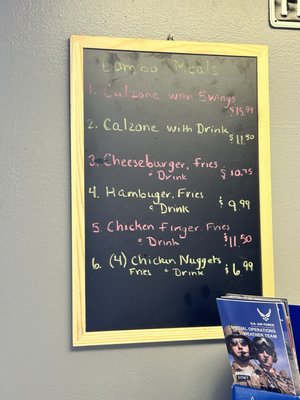 Combo Meals
1. Calzone with 5wings
$15.99
2. Calzone with Drink
$11.50
3. Cheeseburger, fries
& Drink $10.75
4. Hambuger, Fries
& Drink $9.99
5. Chicken finger, Fries
& Drink $11.50
6. (4) Chicken Nuggets
Fries & Drink $6.99
U.S. AIR FORCE
SPECIAL OPERATIONS
WEATHER TEAM